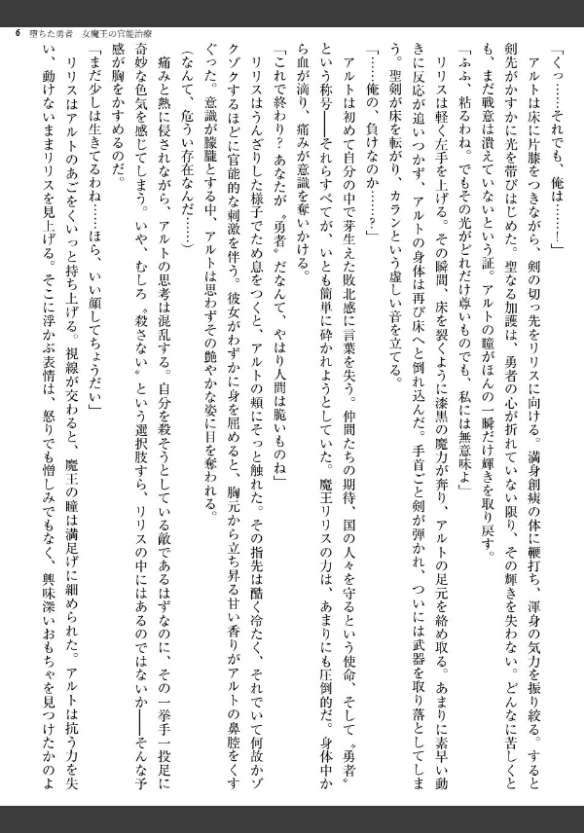 6 堕ちた勇者　女魔王の官能治療
「くっ……それでも、俺は……！」
　アルトは床に片膝をつきながら、剣の切っ先をリリスに向ける。満身創痍の体に鞭打ち、渾身の気力を振り絞る。すると
剣先がかすかに光を帯びはじめた。聖なる加護は、勇者の心が折れていない限り、その輝きを失わない。どんなに苦しくと
も、まだ戦意は潰えていないという証。アルトの瞳がほんの一瞬だけ輝きを取り戻す。
「ふふ、粘るわね。でもその光がどれだけ尊いものでも、私には無意味よ」
　リリスは軽く左手を上げる。その瞬間、床を裂くように漆黒の魔力が奔り、アルトの足元を絡め取る。あまりに素早い動
きに反応が追いつかず、アルトの身体は再び床へと倒れ込んだ。手首ごと剣が弾かれ、ついには武器を取り落としてしま
う。聖剣が床を転がり、カランという虚しい音を立てる。
「……俺の、負けなのか……？」
　アルトは初めて自分の中で芽生えた敗北感に言葉を失う。仲間たちの期待、国の人々を守るという使命、そして〝勇者〟
という称号――それらすべてが、いとも簡単に砕かれようとしていた。魔王リリスの力は、あまりにも圧倒的だ。身体中か
ら血が滴り、痛みが意識を奪いかける。
「これで終わり？ あなたが〝勇者〟だなんて、やはり人間は脆いものね」
　リリスはうんざりした様子でため息をつくと、アルトの頬にそっと触れた。その指先は酷く冷たく、それでいて何故かゾ
クゾクするほどに官能的な刺激を伴う。彼女がわずかに身を屈めると、胸元から立ち昇る甘い香りがアルトの鼻腔をくす
ぐった。意識が朦朧とする中、アルトは思わずその艶やかな姿に目を奪われる。
（なんて、危うい存在なんだ……）
　痛みと熱に侵されながら、アルトの思考は混乱する。自分を殺そうとしている敵であるはずなのに、その一挙手一投足に
奇妙な色気を感じてしまう。いや、むしろ〝殺さない〟という選択肢すら、リリスの中にはあるのではないか――そんな予
感が胸をかすめるのだ。
「まだ少しは生きてるわね……ほら、いい顔してちょうだい」
　リリスはアルトのあごをくいっと持ち上げる。視線が交わると、魔王の瞳は満足げに細められた。アルトは抗う力を失
い、動けないままリリスを見上げる。そこに浮かぶ表情は、怒りでも憎しみでもなく、興味深いおもちゃを見つけたかのよ